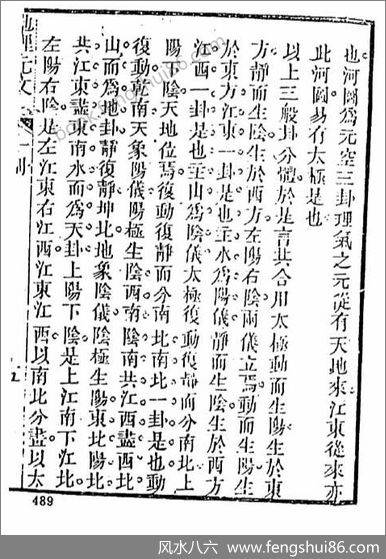 也河圖爲元空三卦理氣之元從有天地來江東從來亦
此河圖易有太極是也
以上三般卦分體於是言共合用太極動而生陽生於東
方靜而生陰生於西方左陽右陰兩儀立焉動而生陽生
於東方江東一卦是也主水爲陽儀靜而生陰生於西方
江西一卦是也主山爲陰儀太極復動復靜而分南北上
陽下陰天地位焉復動復靜而分南北南北一卦是也動
復動乾南天象陽儀陽極生陰西南陰南共江西盡西北
山而爲地卦靜復靜坤北地象陰儀陰極生陽東北陽北
共江東盡東南水而爲天卦上陽下陰是上江南下江北
左陽右陰是左江東右江西江東江西以南北分盡以太
489
风水八六 - www.fengshui86.com